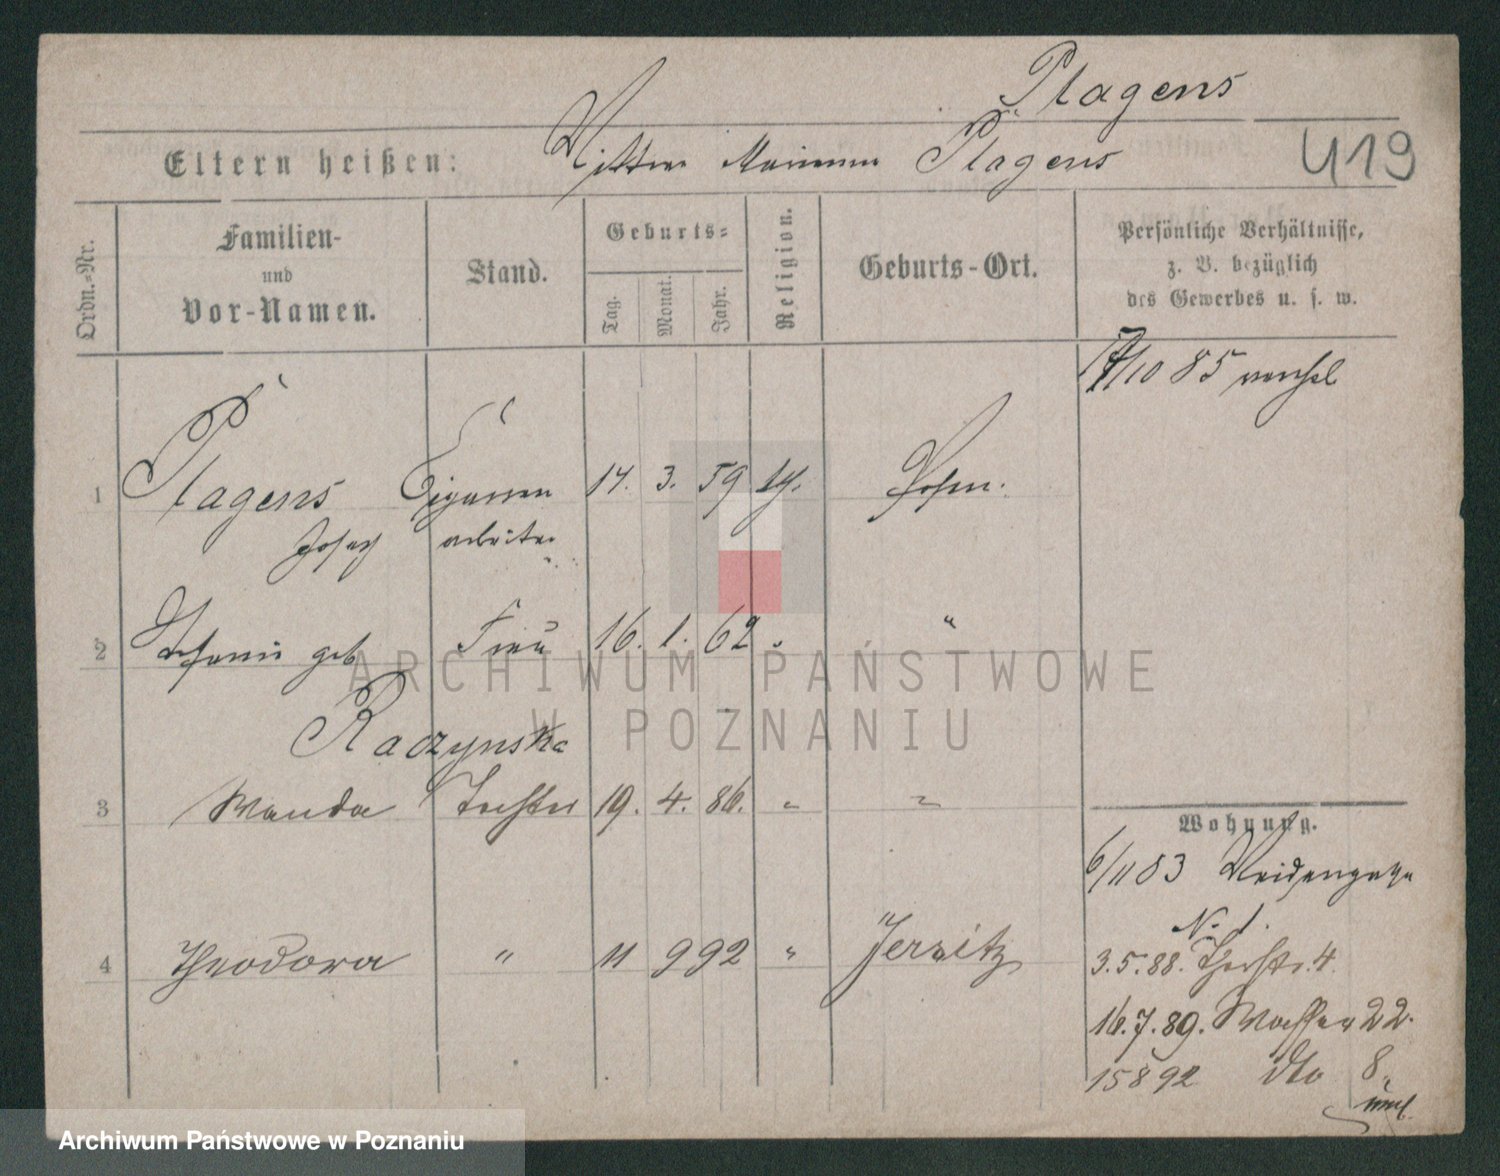 Plagens
Eltern heißen: Plagens
419
Ordn.-Nr.
Familien-
und
Vor-Namen.
Stand.
Geburts-
Tag.
Monat.
Jahr.
Religion.
Geburts-Ort.
Persönliche Verhältnisse,
z. B. bezüglich
des Gewerbes u. s. w.
/10 85
1 Plagens Cigarren 17. 3. 59 Posen.
Josef arbeiter
2 geb Frau 16. 1. 62 "
Raczynska
3 Wanda Tochter 19. 4. 86. " "
Wohnung.
6/11 83
N. 1.
4 Theodora " 11 9 92 " Jersitz
3.5.88. 4.
16.7.89. Wasser 22.
15 8 92 dto 8.
ARCHIWUM PAŃSTWOWE
W POZNANIU
Archiwum Państwowe w Poznaniu